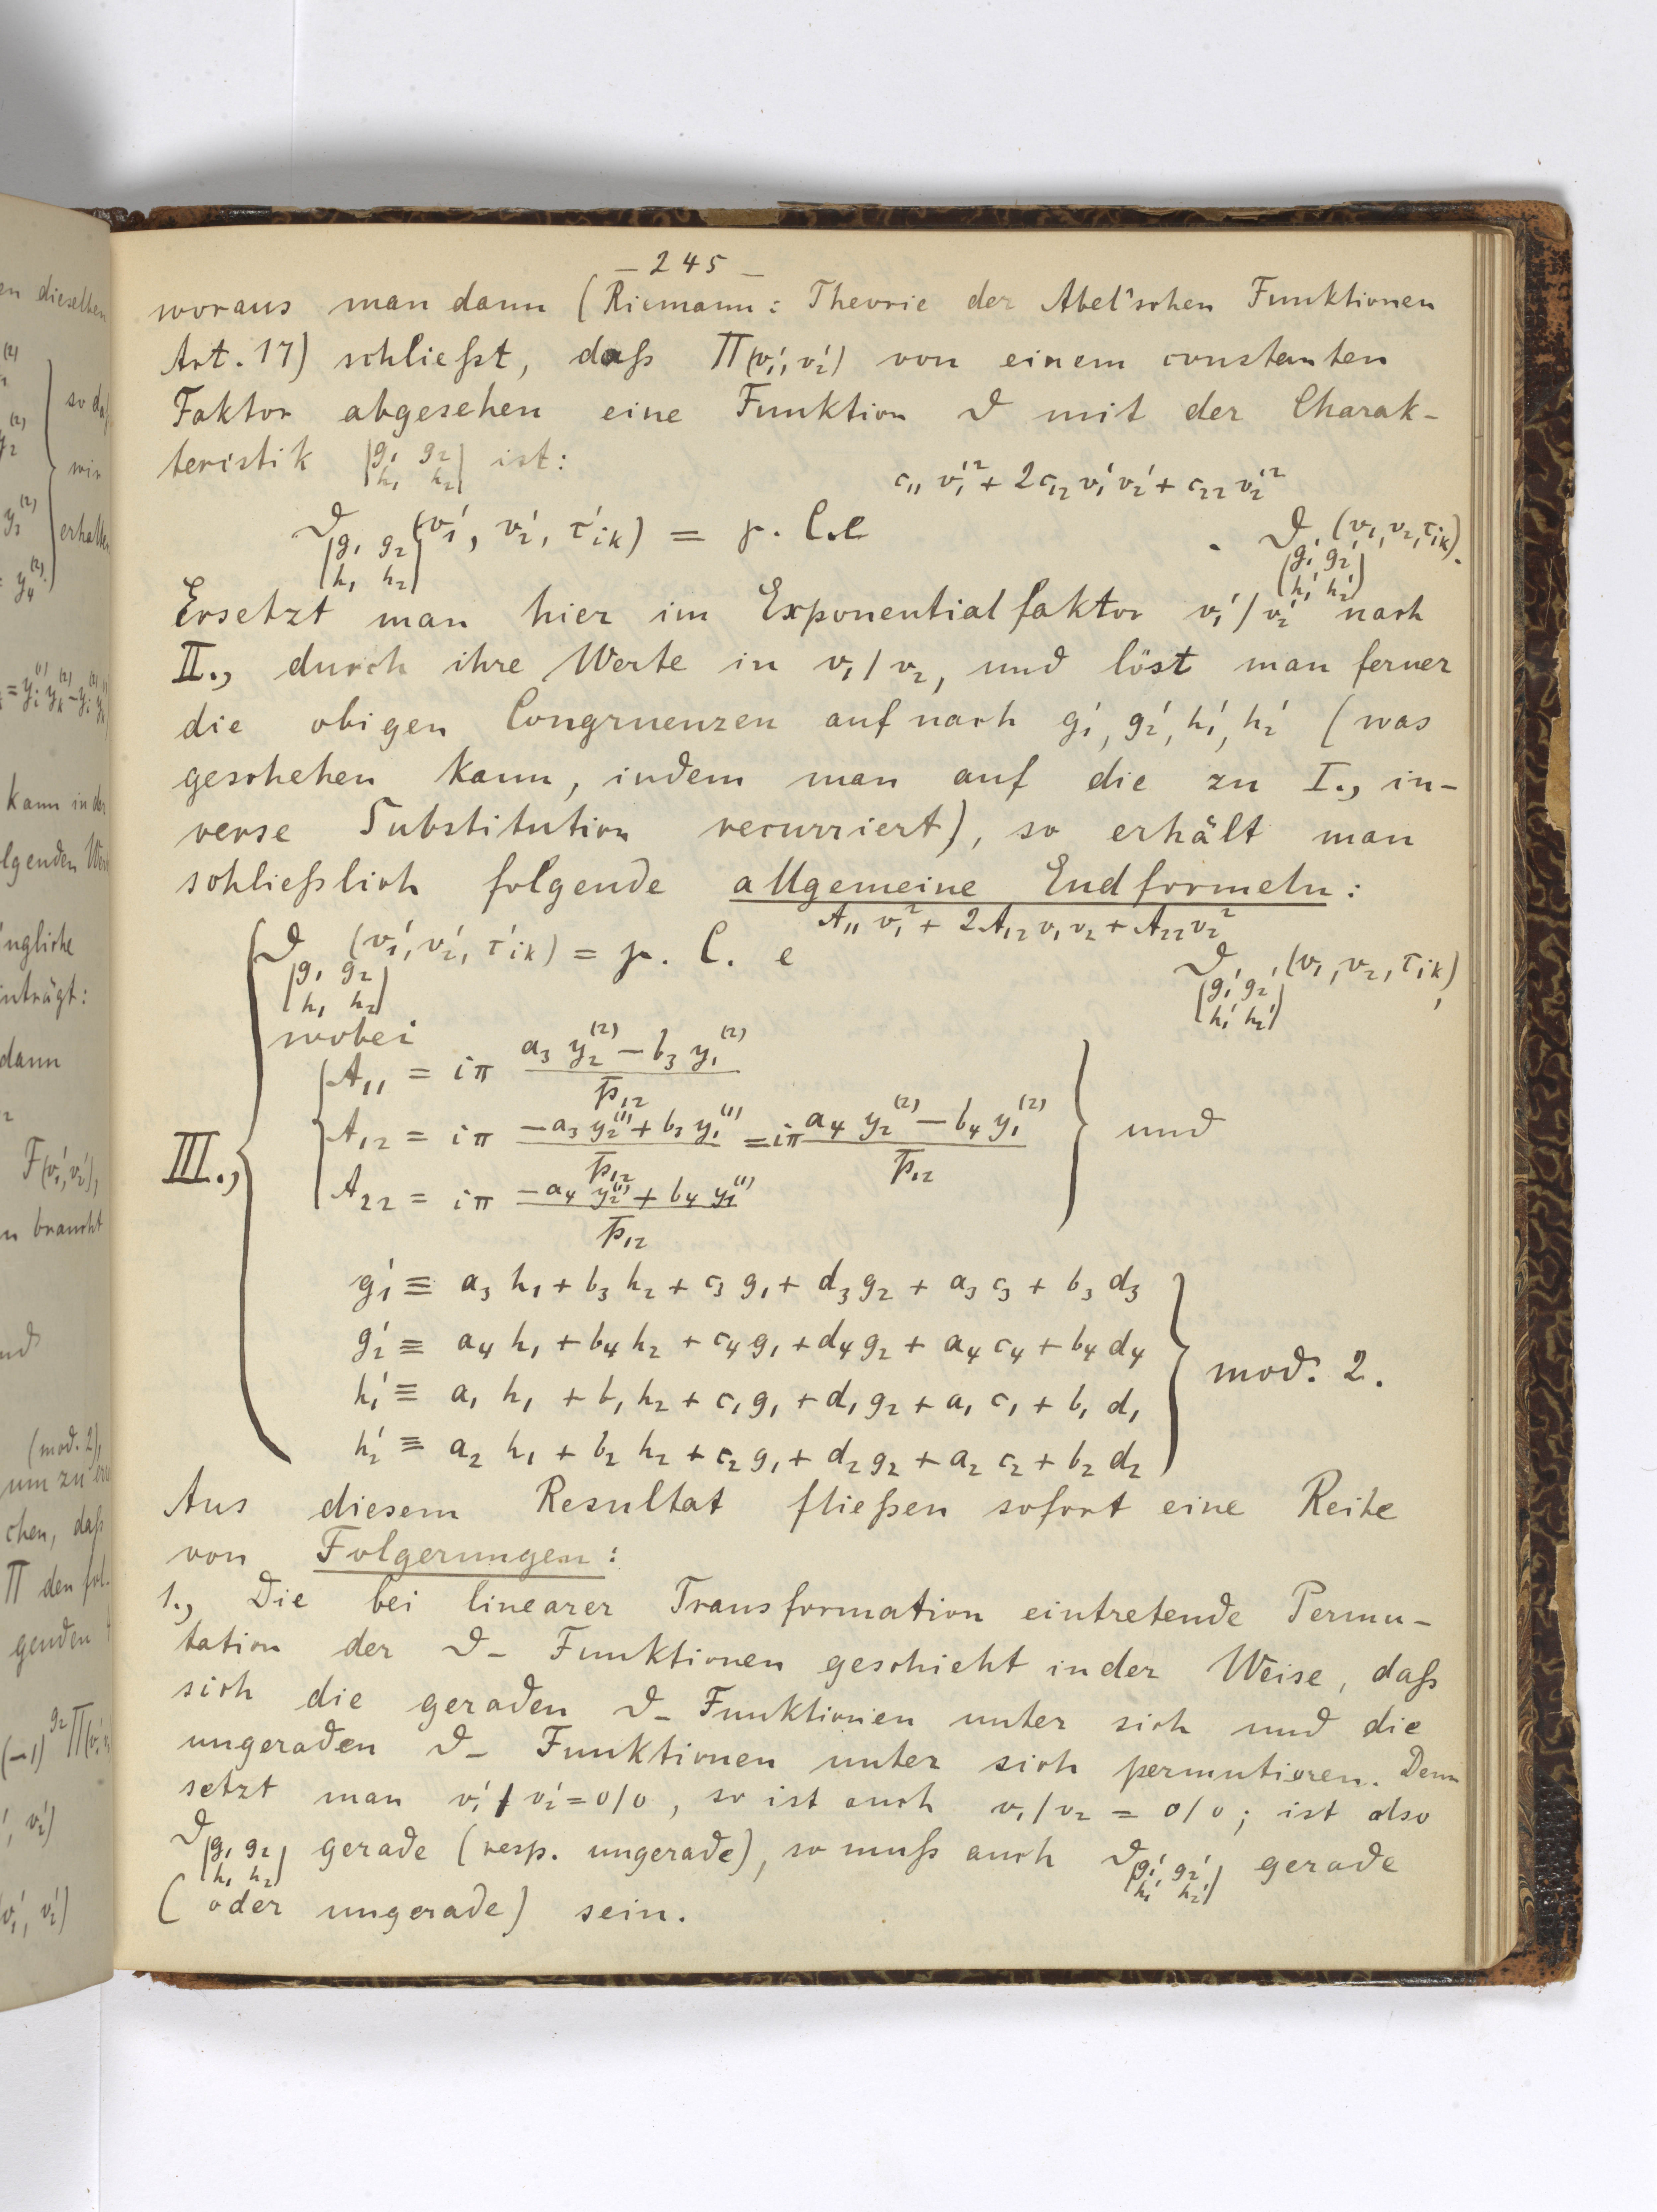 – 245 –
woraus man dann (Riemann: Theorie der Abel'schen Funktionen
Art. 17) schließt, daß Π(v₁', v₂') von einem constanten
Faktor abgesehen eine Funktion ϑ mit der Charak-
teristik |g₁ g₂ / h₁ h₂| ist:
ϑ|g₁ g₂ / h₁ h₂|(v₁', v₂', τ'ik) = p. C. e^(c₁₁ v₁'² + 2c₁₂ v₁' v₂' + c₂₂ v₂'²) . ϑ|g₁' g₂' / h₁' h₂'|(v₁, v₂, τik).
Ersetzt man hier im Exponentialfaktor v₁'/v₂' nach
II., durch ihre Werte in v₁/v₂, und löst man ferner
die obigen Congruenzen auf nach g₁', g₂', h₁', h₂' (was
geschehen kann, indem man auf die zu I., in-
verse Substitution recurriert), so erhält man
schließlich folgende allgemeine Endformeln:
ϑ|g₁ g₂ / h₁ h₂|(v₁', v₂', τ'ik) = p. C. e^(A₁₁ v₁² + 2A₁₂ v₁ v₂ + A₂₂ v₂²) ϑ|g₁' g₂' / h₁' h₂'|(v₁, v₂, τik),
wobei
A₁₁ = iπ (a₃ y₂⁽²⁾ – b₃ y₁⁽²⁾) / p₁₂
III., A₁₂ = iπ (–a₃ y₂⁽¹⁾ + b₃ y₁⁽¹⁾) / p₁₂ = iπ (a₄ y₂⁽²⁾ – b₄ y₁⁽²⁾) / p₁₂ und
A₂₂ = iπ (–a₄ y₂⁽¹⁾ + b₄ y₁⁽¹⁾) / p₁₂
g₁' ≡ a₃ h₁ + b₃ h₂ + c₃ g₁ + d₃ g₂ + a₃ c₃ + b₃ d₃
g₂' ≡ a₄ h₁ + b₄ h₂ + c₄ g₁ + d₄ g₂ + a₄ c₄ + b₄ d₄
mod. 2.
h₁' ≡ a₁ h₁ + b₁ h₂ + c₁ g₁ + d₁ g₂ + a₁ c₁ + b₁ d₁
h₂' ≡ a₂ h₁ + b₂ h₂ + c₂ g₁ + d₂ g₂ + a₂ c₂ + b₂ d₂
Aus diesem Resultat fließen sofort eine Reihe
von Folgerungen:
1., Die bei linearer Transformation eintretende Permu-
tation der ϑ– Funktionen geschieht in der Weise, daß
sich die geraden ϑ– Funktionen unter sich und die
ungeraden ϑ– Funktionen unter sich permutieren. Denn
setzt man v₁'/v₂' = 0/0, so ist auch v₁/v₂ = 0/0; ist also
ϑ|g₁ g₂ / h₁ h₂| gerade (resp. ungerade), so muß auch ϑ|g₁' g₂' / h₁' h₂'| gerade
(oder ungerade) sein.